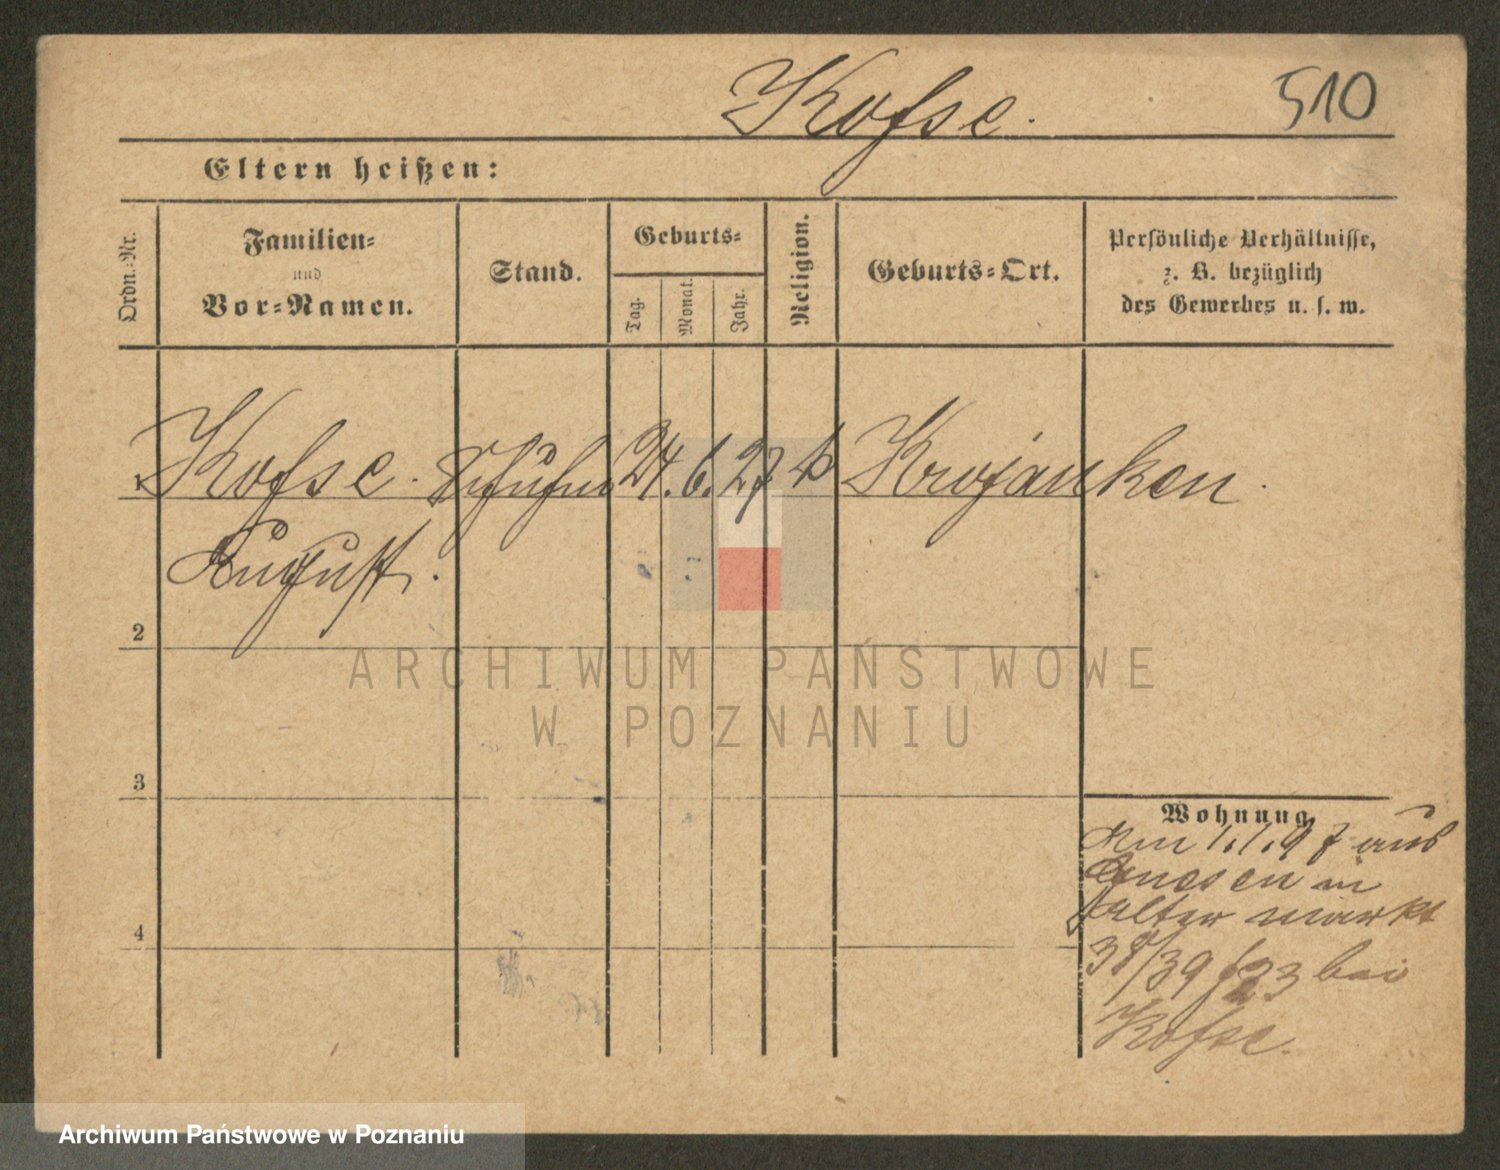 Kofse.
510
Eltern heißen:
Ordn.-Nr.
Familien-
und
Vor-Namen.
Stand.
Geburts-
Tag.
Monat.
Jahr.
Religion.
Geburts-Ort.
Persönliche Verhältnisse,
z. B. bezüglich
des Gewerbes u. s. w.
1 Kofse. 24. 6. 27 Krojanken.
August.
2
3
4
Wohnung
Am 1.1.97 aus
Gnesen in
Alter markt
38/39 bei
Kofse.
ARCHIWUM PAŃSTWOWE
W POZNANIU
Archiwum Państwowe w Poznaniu